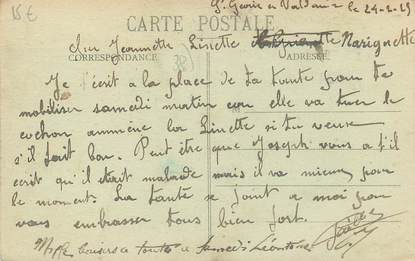 15 €
St Geoire en Valdaine le 24-2-25
CARTE POSTALE
Chère Jeannette Lisette Narignette
CORRESPONDANCE
ADRESSE
38
Je t'écrit a la place de ta tante pour te
mobiliser samedi matin car elle va tuer le
cochon ammene la Linette si tu veux
s'il fait bon. Peut être que Joseph vous a t'il
écrit qu'il était malade mais il va mieux pour
le moment. La tante se joint a moi pour
vous embrasser tous bien fort.
Mille baisers a toutes a samedi Léontine